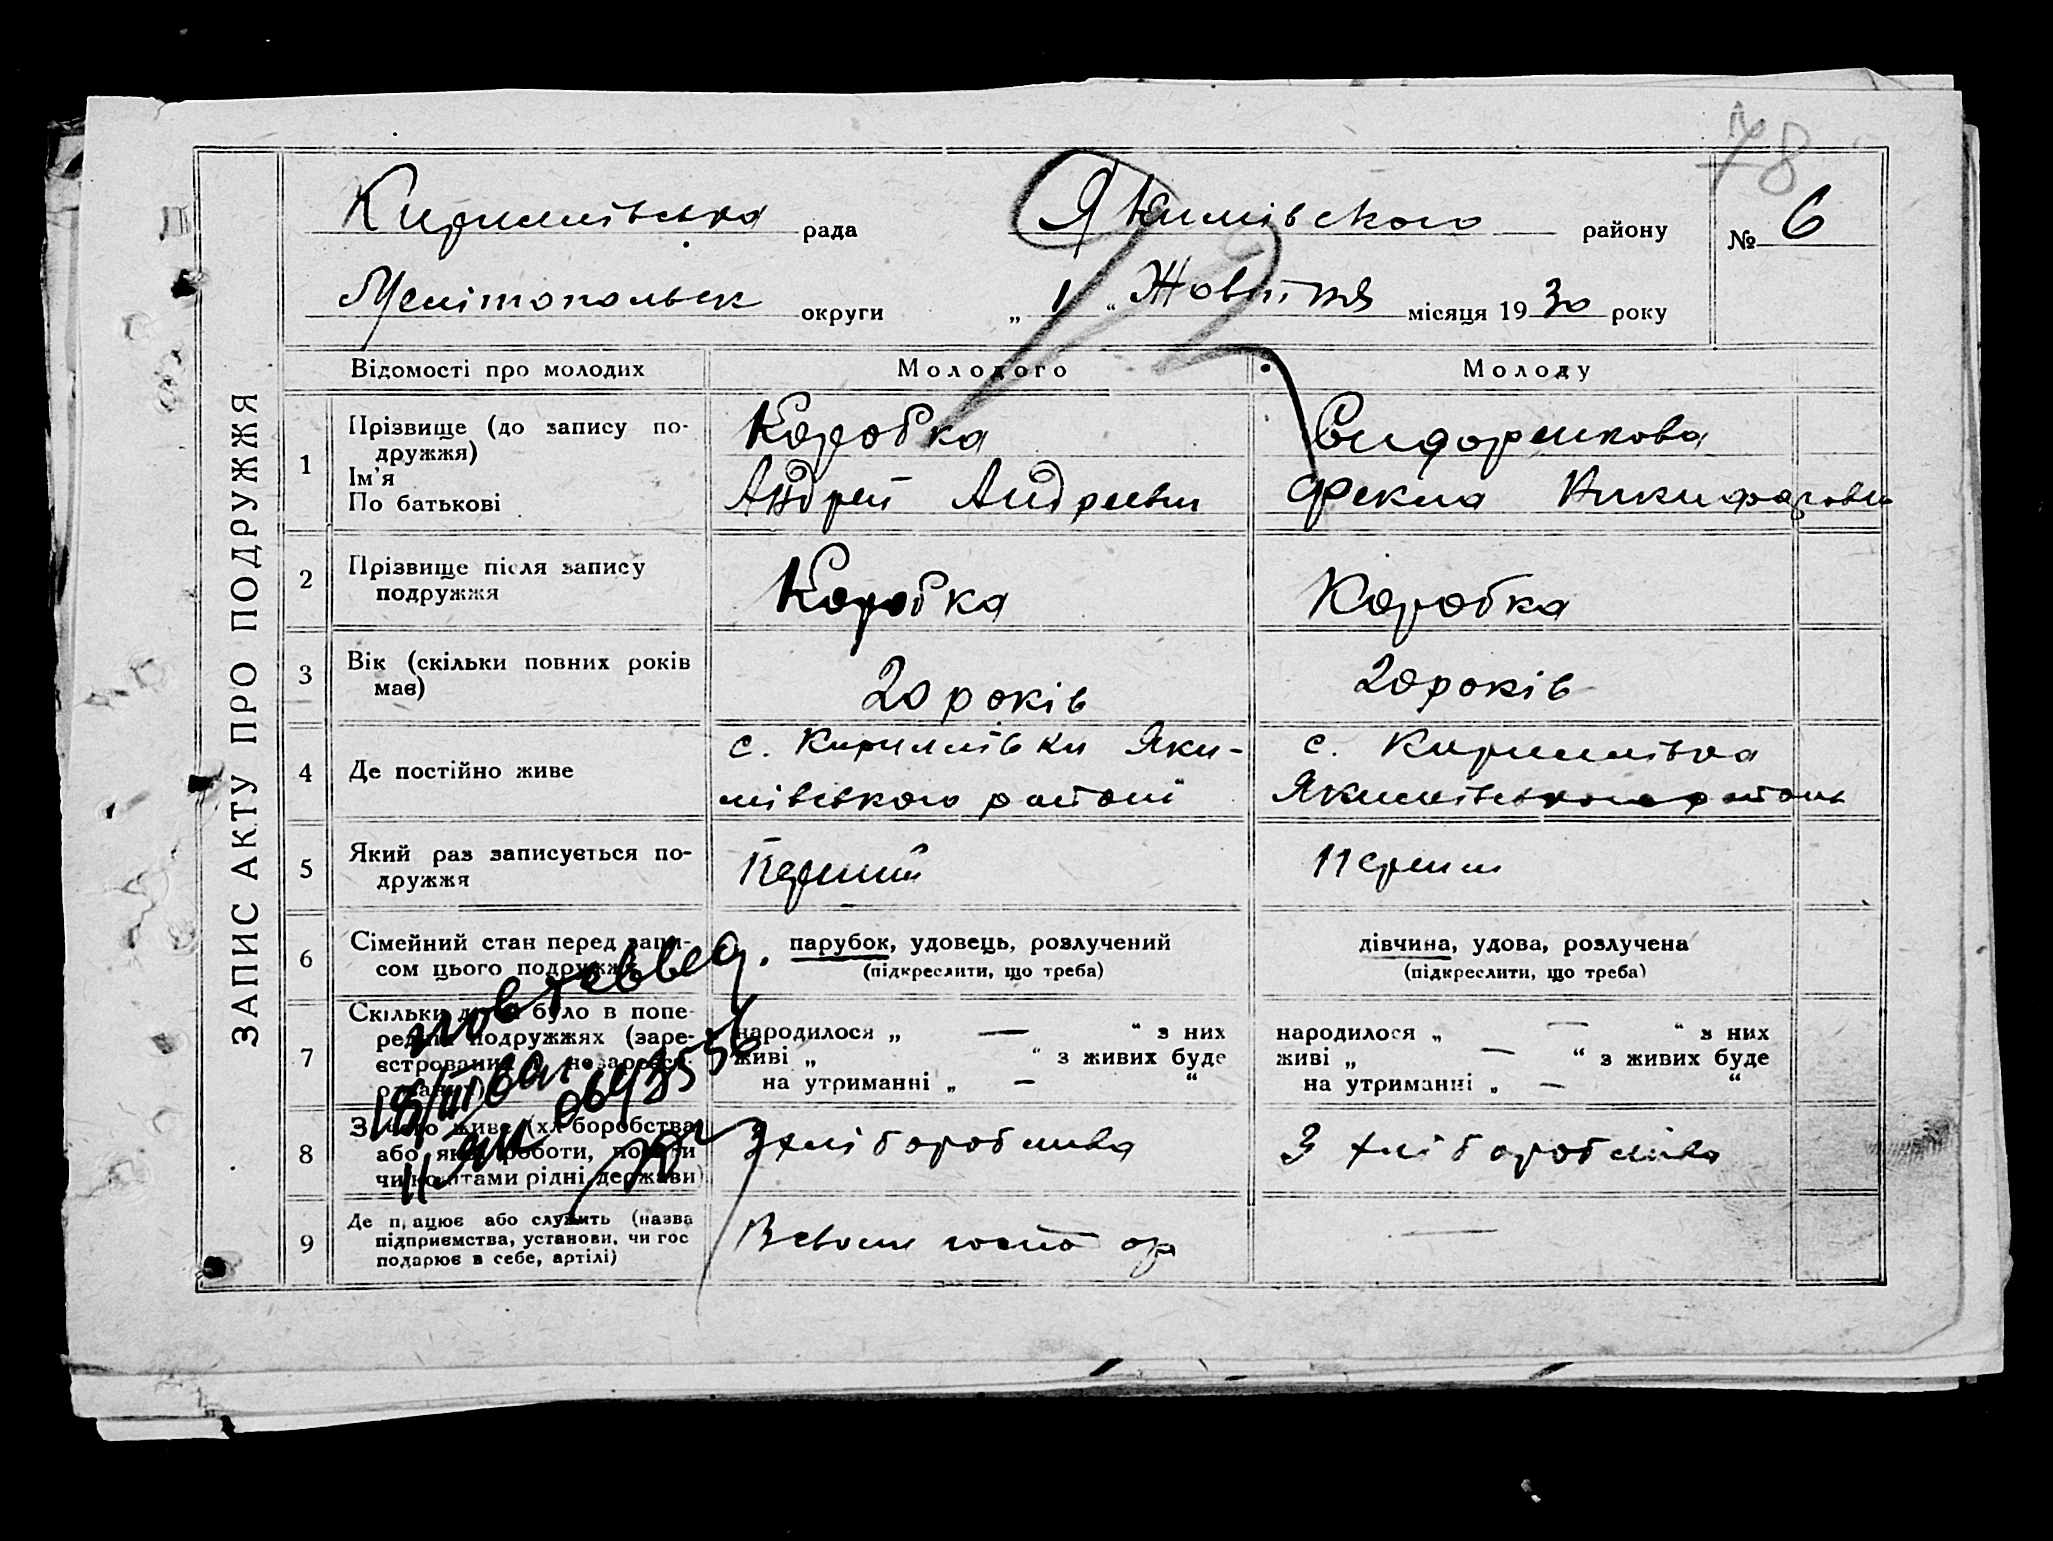 78
Кирилівська рада Якимівского району № 6
Мелітопольск округи „ 1 “ Жовтня місяця 1930 року
92
ЗАПИС АКТУ ПРО ПОДРУЖЖЯ
Відомості про молодих Молодого Молоду
1 Прізвище (до запису по- Коробка Сидоренкова
дружжя)
Ім'я Андрей Андреевич Фекла Никифоровн
По батькові
2 Прізвище після запису Коробка Коробка
подружжя
3 Вік (скільки повних років 20 років 20 років
має)
4 Де постійно живе с. Кирилівки Яки- с. Кирилівка
мівського району Якимівського району
5 Який раз записується по- Перший Перши
дружжя
6 Сімейний стан перед запи- парубок, удовець, розлучений дівчина, удова, розлучена
сом цього подружжя (підкреслити, що треба) (підкреслити, що треба)
7 Скільки було в попе- народилося „ — “ з них народилося „ — “ з них
подружжях (заре- живі „ “ з живих буде живі „ — “ з живих буде
на утриманні „ — “ на утриманні „ — “
8 З чого живе (хліборобства З хліборобства З хліборобства
або роботи,
чи коштами рідні, держави)
9 Де працює або служить (назва В своем госпо —
підприємства, установи, чи гос
подарює в себе, артілі)